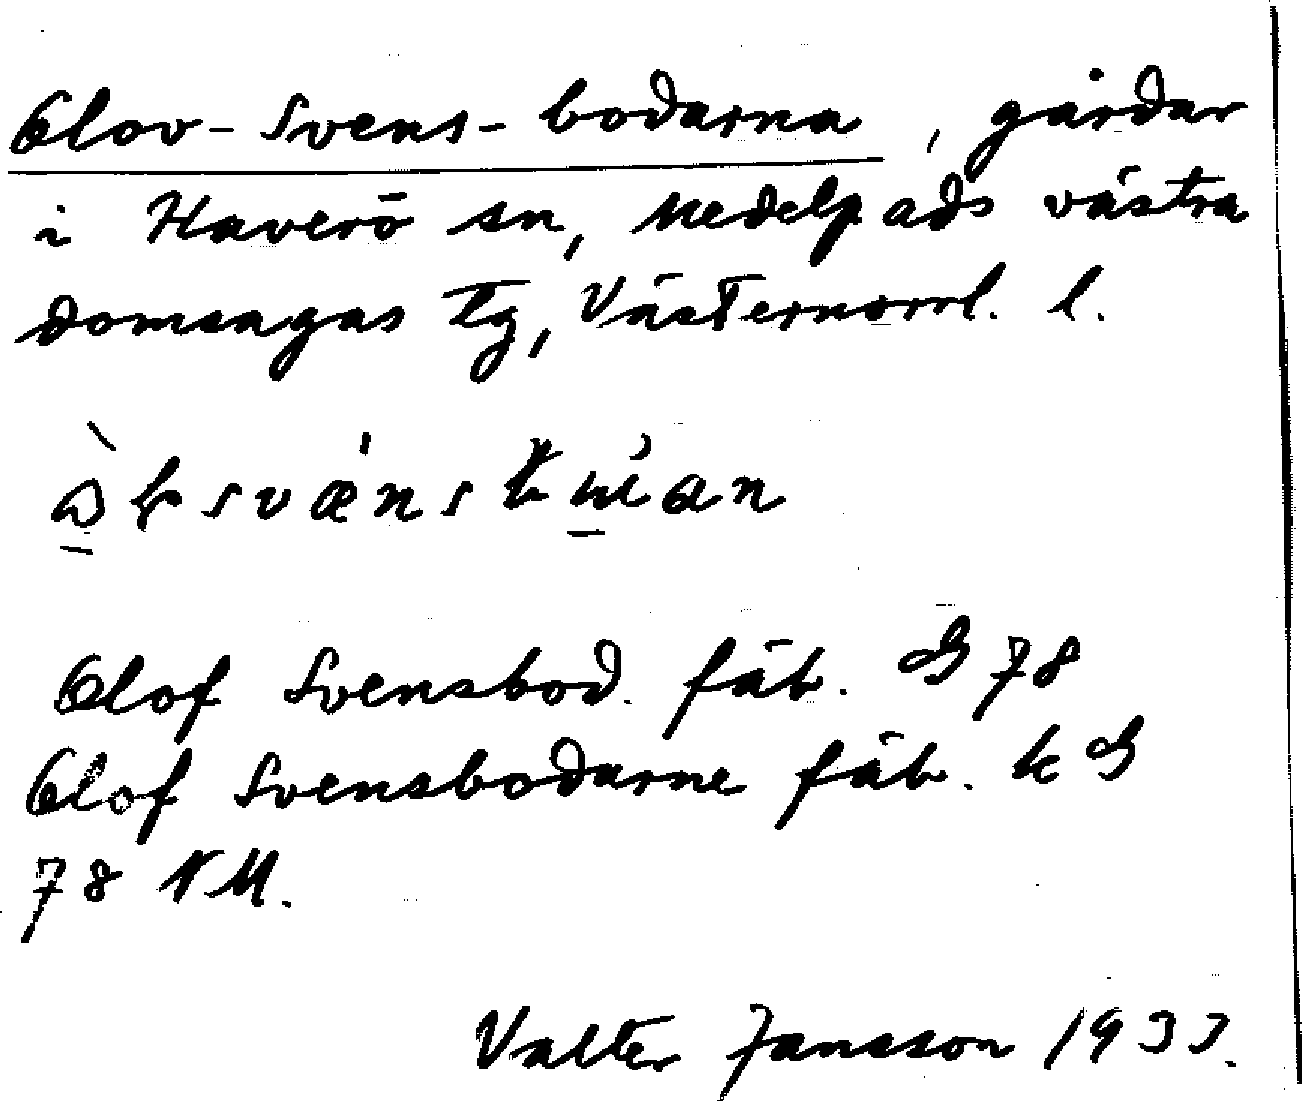 Olov-Svens-bodarna, gårdar
i Haverö sn, Medelpads västra
domsagas tg, Västernorrl. l.
Olof Svensbod. fäb. GS 78
Olof Svensbodarne fäb. k GS
78 NM.
Valter Jansson 1933.